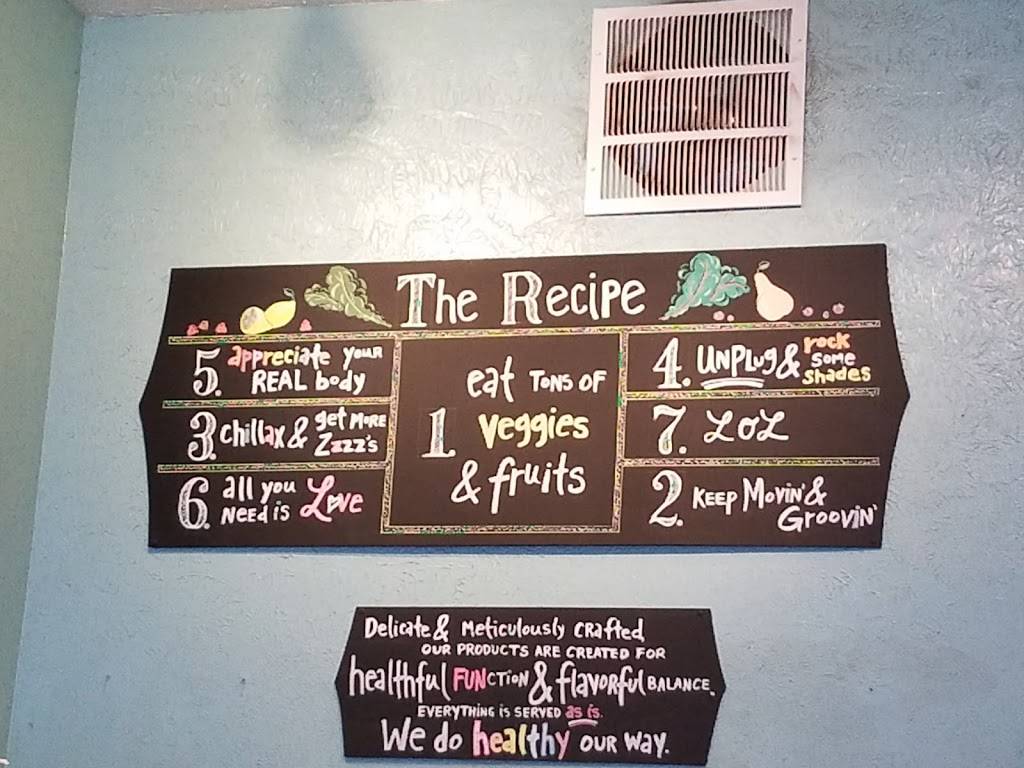 The Recipe
5. appreciate your
REAL body
3. Chillax & get MORE
Zzzz's
6. all you
Need is Love
1. eat TONS OF
veggies
& fruits
4. UNPLUG & rock
some
shades
7. LOL
2. KEEP MOVIN' &
GROOVIN'
Delicate & Meticulously CRafted,
OUR PRODUCTS ARE CREATED FOR
healthful FUNCTION & flavorful BALANCE.
EVERYTHING IS SERVED as is.
We do healthy OUR WAY.